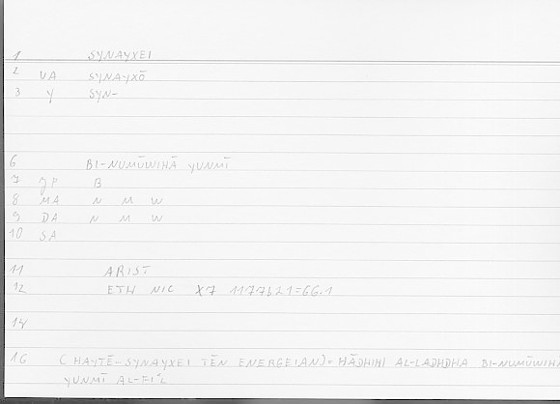 1 SYNAYXEI
2 VA SYNAYXŌ
3 Y SYN-
6 BI-NUMŪWIHĀ YUNMĪ
7 JP B
8 MA N M W
9 DA N M W
10 SA
11 ARIST
12 ETH NIC X7 1177b21=66.1
14
16 (HAYTĒ-SYNAYXEI TĒN ENERGEIAN)= HĀDHIHI AL-LADHDHA BI-NUMŪWIHĀ
YUNMĪ AL-FI'L